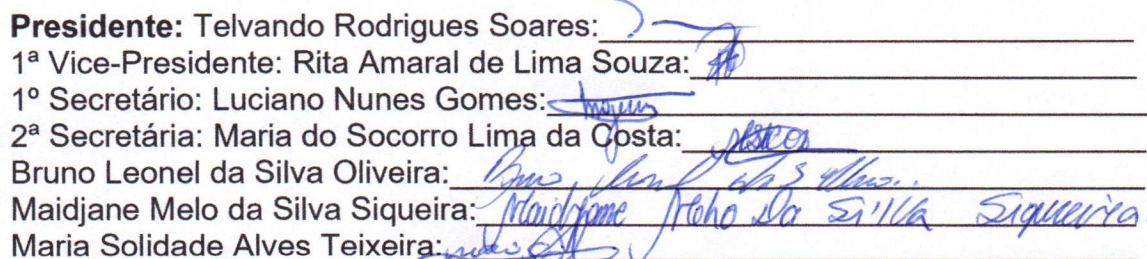 Presidente: Telvando Rodrigues Soares:
1ª Vice-Presidente: Rita Amaral de Lima Souza:
1º Secretário: Luciano Nunes Gomes:
2ª Secretária: Maria do Socorro Lima da Costa:
Bruno Leonel da Silva Oliveira:
Maidjane Melo da Silva Siqueira: Maidjane Melo Da Silva Siqueira
Maria Solidade Alves Teixeira: